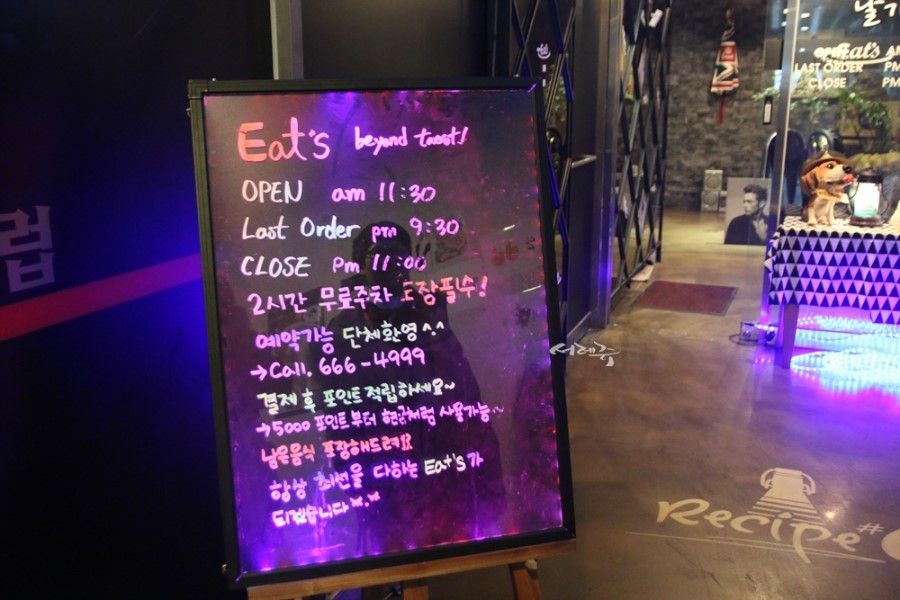 Eat's beyond toast!
OPEN am 11:30
Last Order pm 9:30
CLOSE pm 11:00
2시간 무료주차 도장필수!
예약가능 단체환영^.^
→Call. 666-4999
결제 후 포인트적립하세요~
→5000 포인트부터 현금처럼 사용가능~
남은음식 포장해드려요
항상 최선을 다하는 Eat's가
되겠습니다
Eat's
OPEN AM
LAST ORDER PM
CLOSE PM
럽
Recipe#